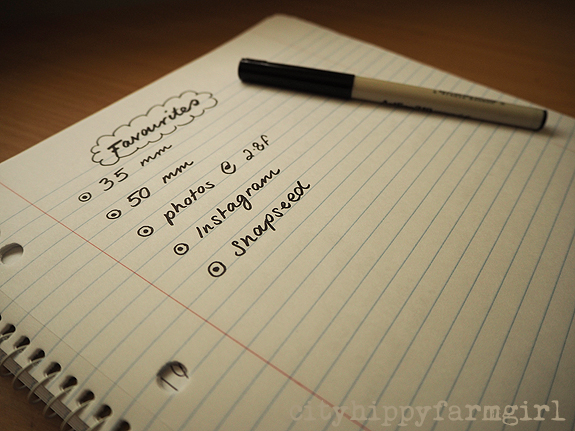 Favourites
35 mm
50 mm
photos @ 2.8f
Instagram
Snapseed
cityhippyfarmgirl